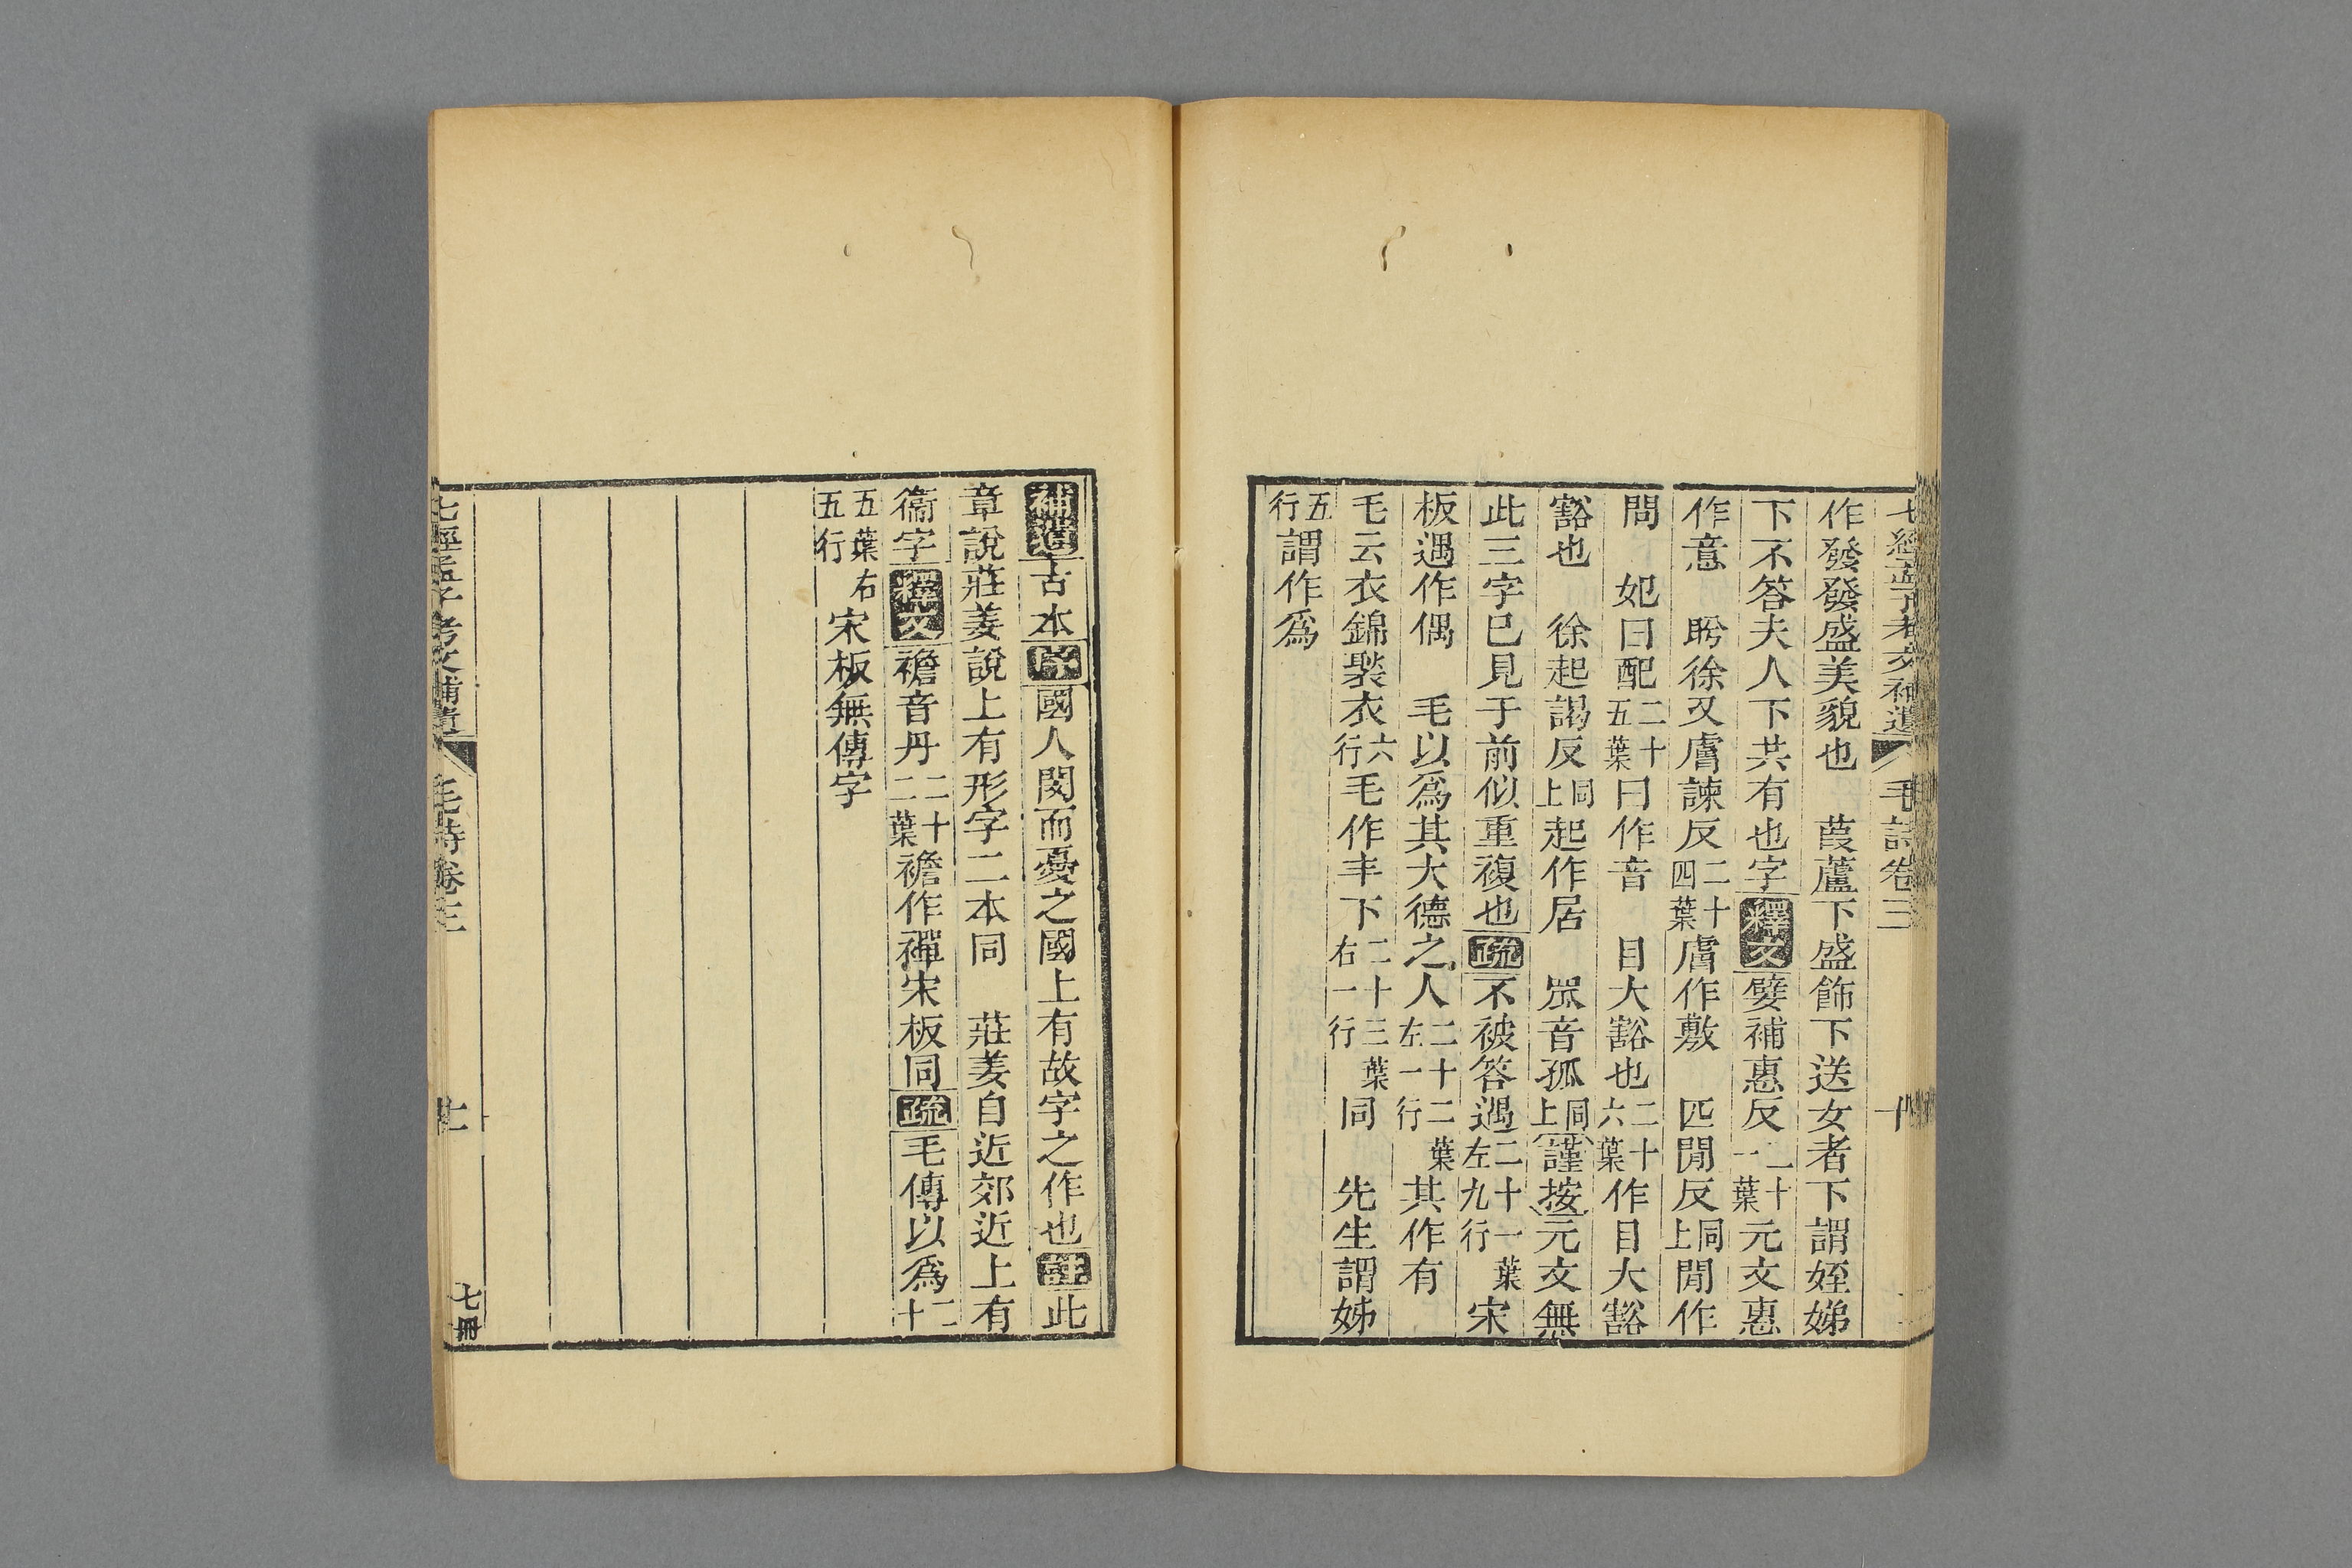 七經孟子考文補遺 毛詩卷三 十
作發發盛美貌也 葭蘆下盛飾下送女者下謂姪娣
下不答夫人下共有也字釋文嬖補惠反二十一葉元文惠
作意 盻徐又膚諫反二十四葉膚作敷 匹閒反同上閒作
問 妃曰配二十五葉曰作音 目大豁也二十六葉作目大豁
豁也 徐起謁反同上起作居 眾音孤同上謹按元文無
此三字已見于前似重複也疏不被答遇二十一葉左九行宋
板遇作偶 毛以爲其大德之人二十二葉左一行其作有
毛云衣錦褧衣六行毛作丰下二十三葉右一行同 先生謂姊
五行謂作爲
補遺古本序國人閔而憂之國上有故字之作也註此
章說莊姜說上有形字二本同 莊姜自近郊近上有
衞字釋文襜音丹二十二葉襜作禪宋板同疏毛傳以爲二十
五葉右五行宋板無傳字
七經孟子考文補遺 毛詩卷三 七冊